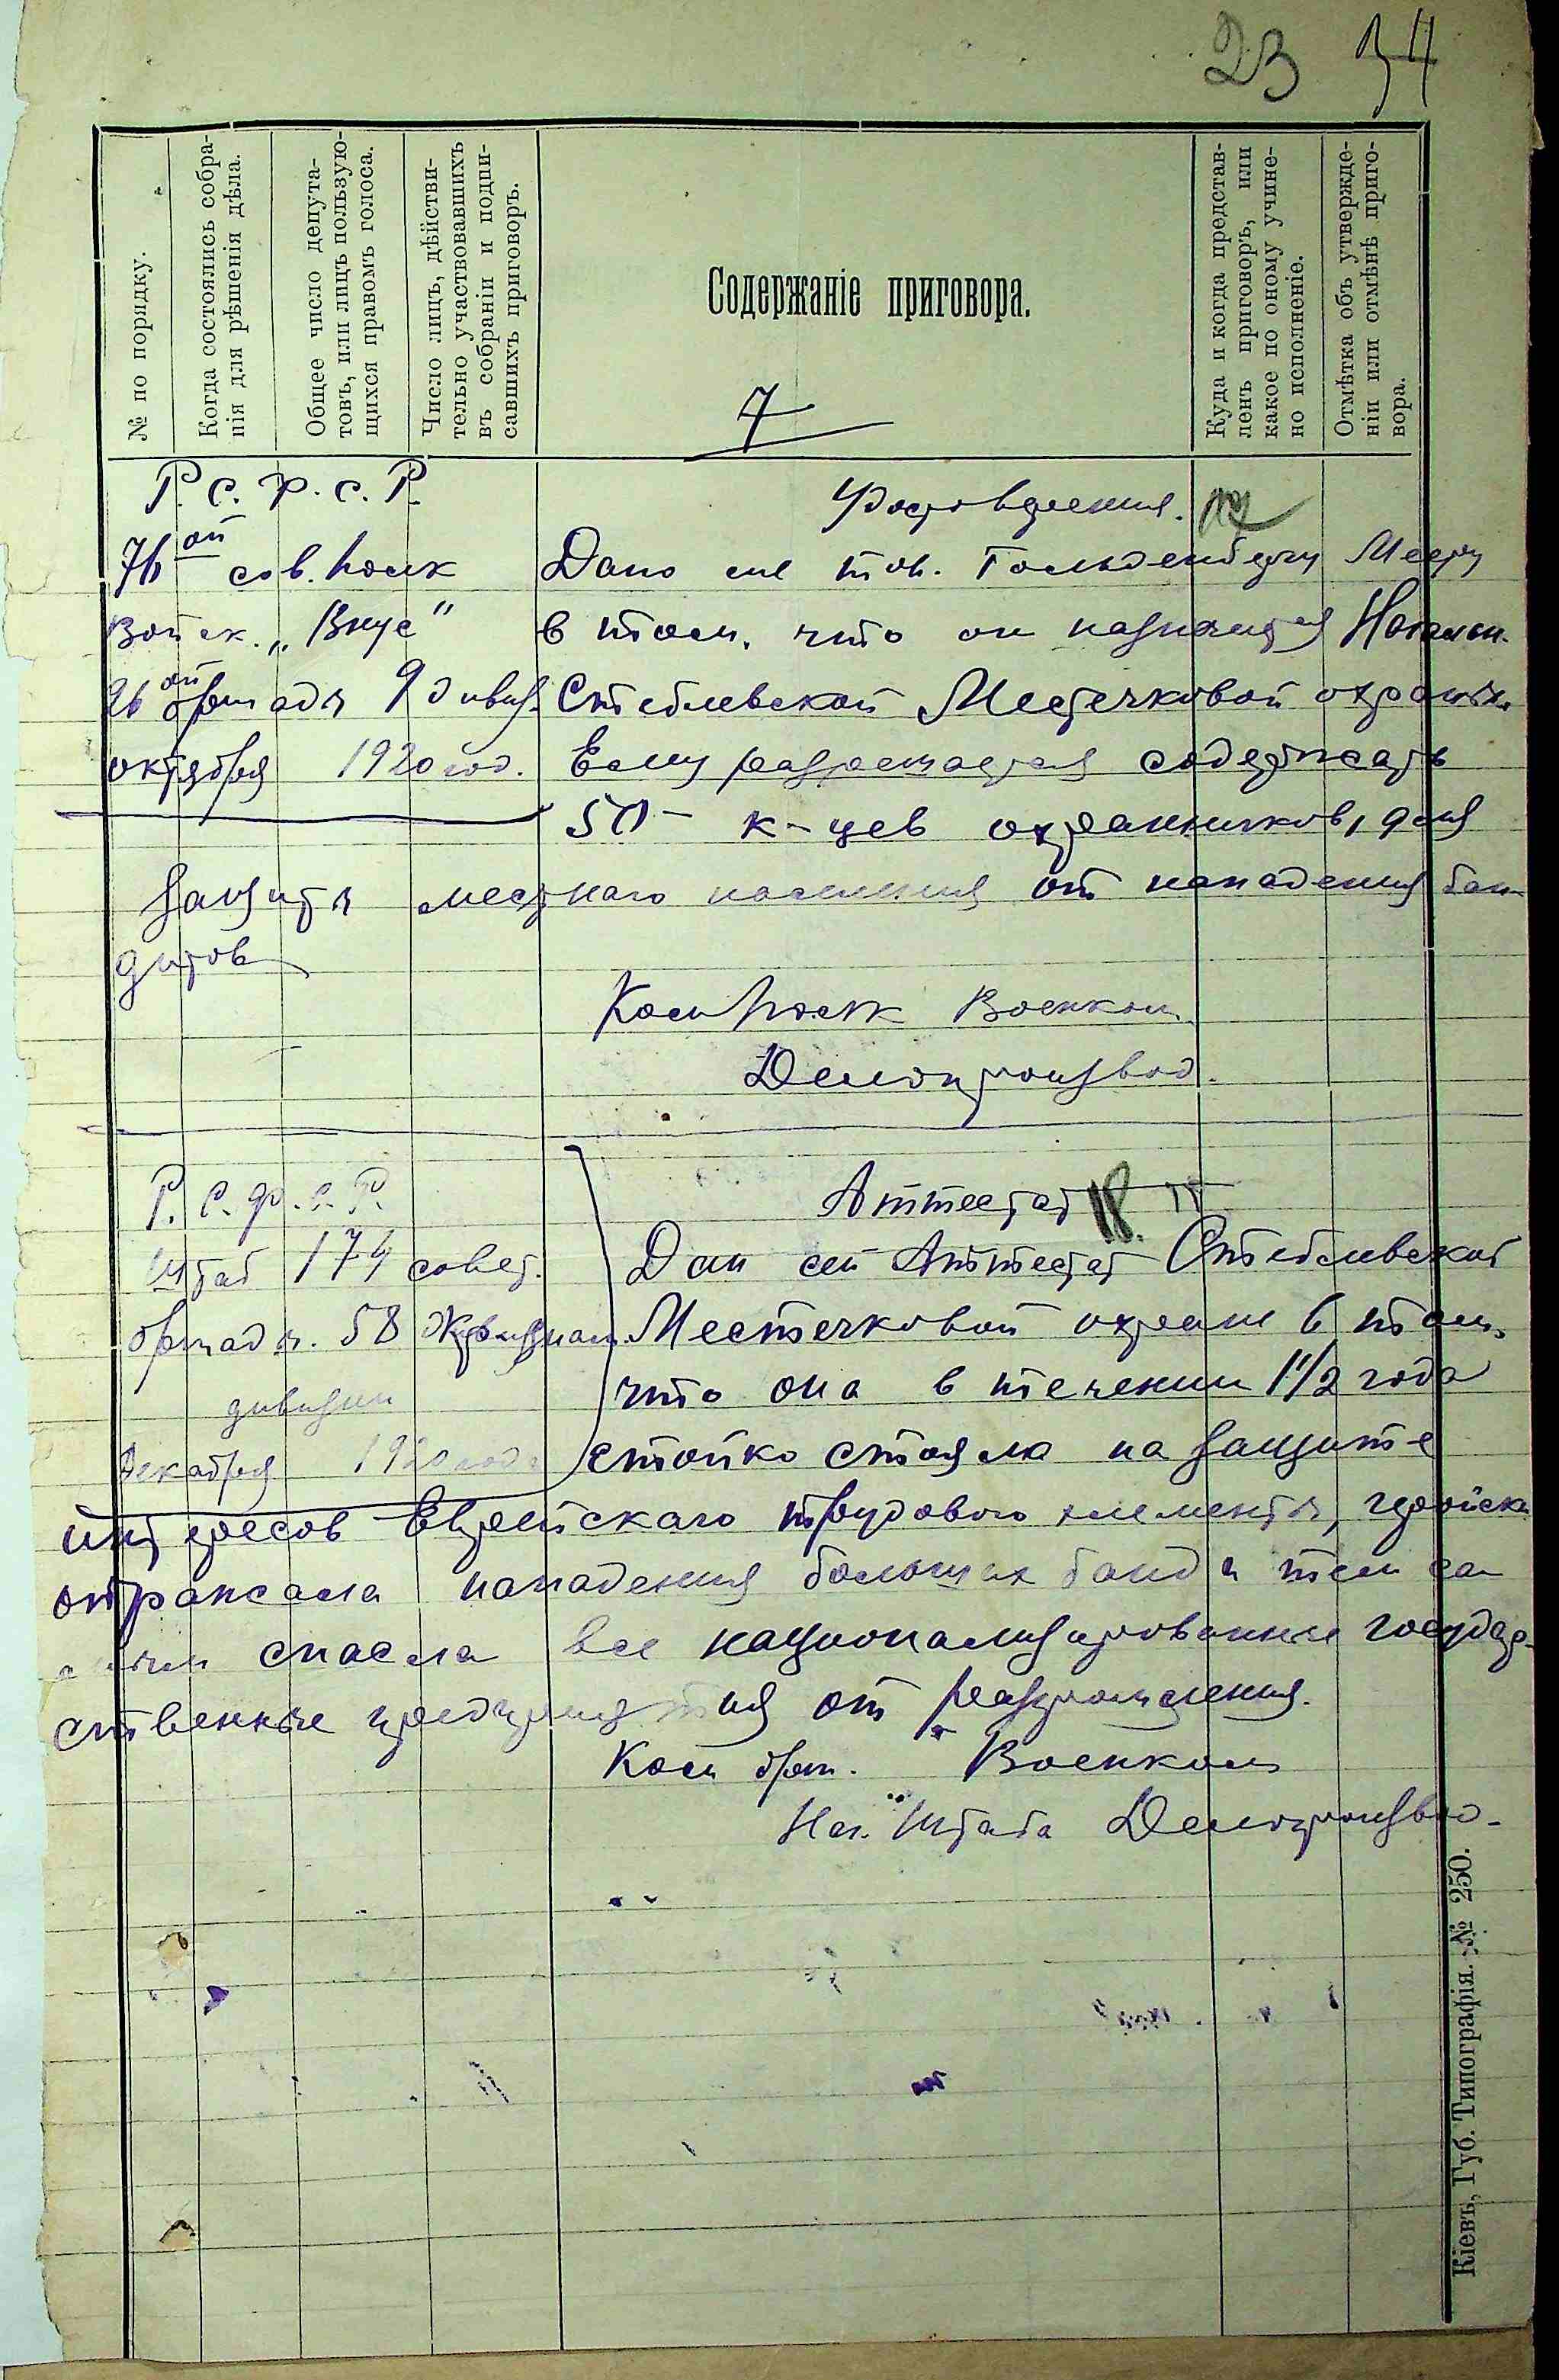 23 34
№ по порядку.
Когда состоялись собра-
нія для рѣшенія дѣла.
Общее число депута-
товъ, или лицъ пользую-
щихся правомъ голоса.
Число лицъ, дѣйстви-
тельно участвовавшихъ
въ собраніи и подпи-
савшихъ приговоръ.
Содержаніе приговора.
7
Куда и когда представ-
ленъ приговоръ, или
какое по оному учине-
но исполненіе.
Отмѣтка объ утвержде-
ніи или отмѣнѣ приго-
вора.
Р. С. Ф. С. Р.
76 ой сов. полк
Войск. „Внус"
26 ой бригады 9 дивиз.
октября 1920 год.
Удостоверения.
Дано сие тов. Гольденбергу Мееру
в том, что он назначается Начальн.
Стеблевской Местечковой охраны.
Ему разрешается содержать
50 - к-цев охранников, для
защиты местнаго населения от нападения бан-
дитов
Ком Полк Военком.
Делопроизвод.
Р. С. Ф. С. Р.
Штаб 174 совет.
бригады. 58
дивизии
Декабря 1920 года
Аттестат 18.
Дан сей Аттестат Стеблевской
Местечковой охране в том,
что она в течении 1 1/2 года
стойко стояла на защите
интересов Еврейскаго трудового элемента, геройски
отражала нападения больших банд и тем са-
мым спасла все национализированные государ-
ственные предприятия от разграмления.
Ком бриг. Военком
Нач. Штаба Делопроизвод.
Кіевъ, Губ. Типографія. № 250.